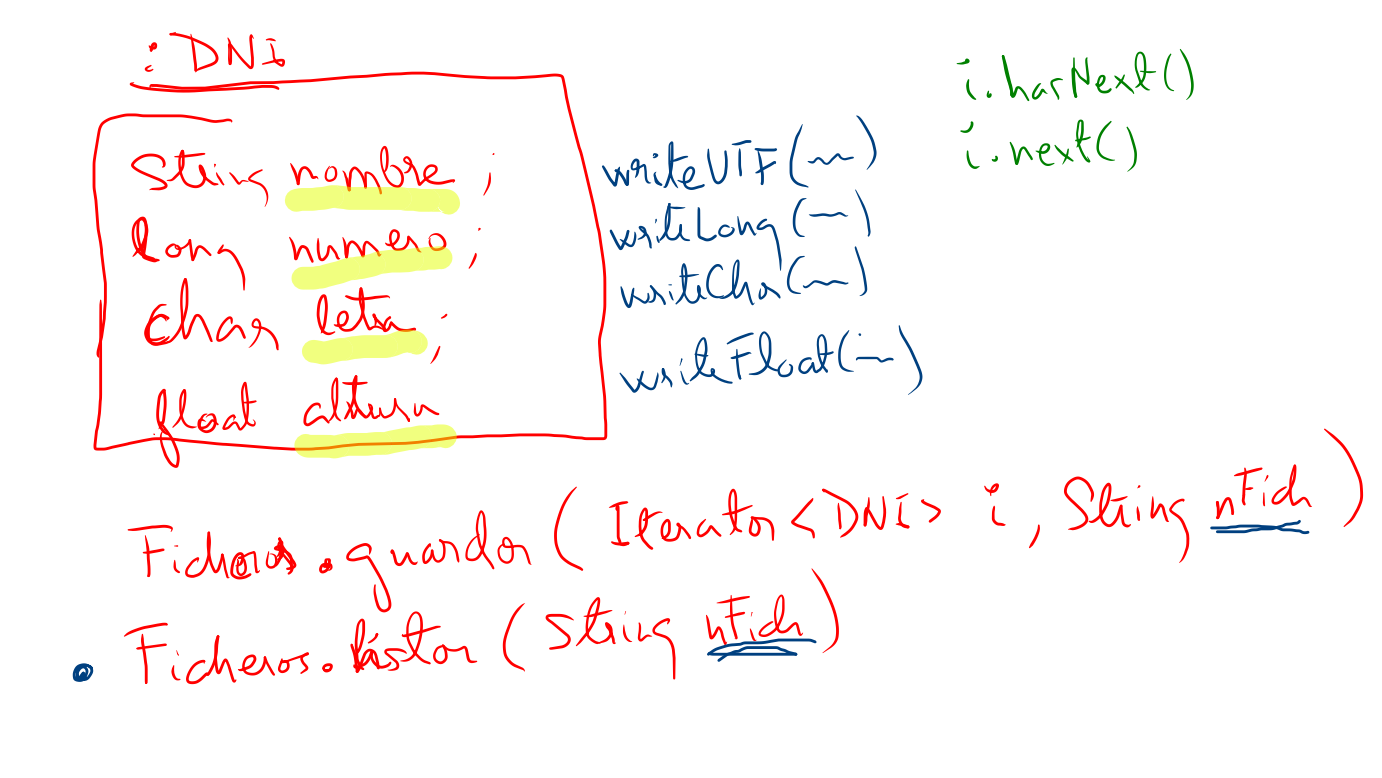 : DNI
String nombre ;
long numero ;
char letra ;
float altura
writeUTF(~)
writeLong(~)
writeChar(~)
writeFloat(~)
i.hasNext()
i.next()
Ficheros.guardar ( Iterator<DNI> i, String nFich )
Ficheros.listar ( String nFich )